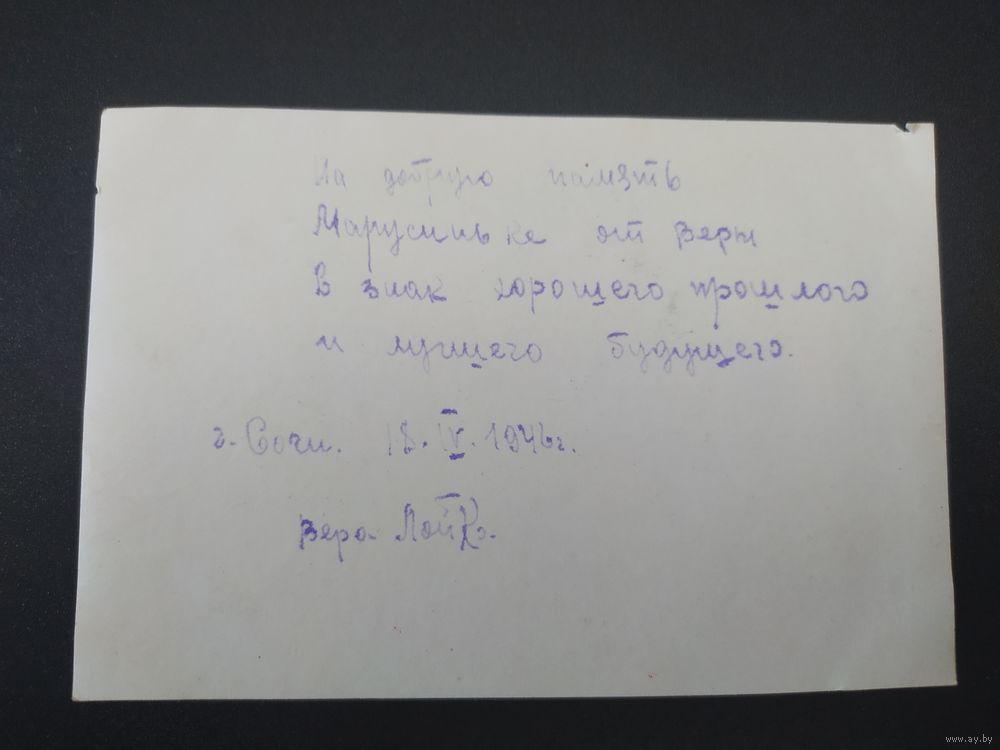 На добрую память
Марусиньке от Веры
В знак хорошего прошлого
и лучшего будущего.
г. Сочи. 18. IV. 1946 г.
Вера
www.ay.by